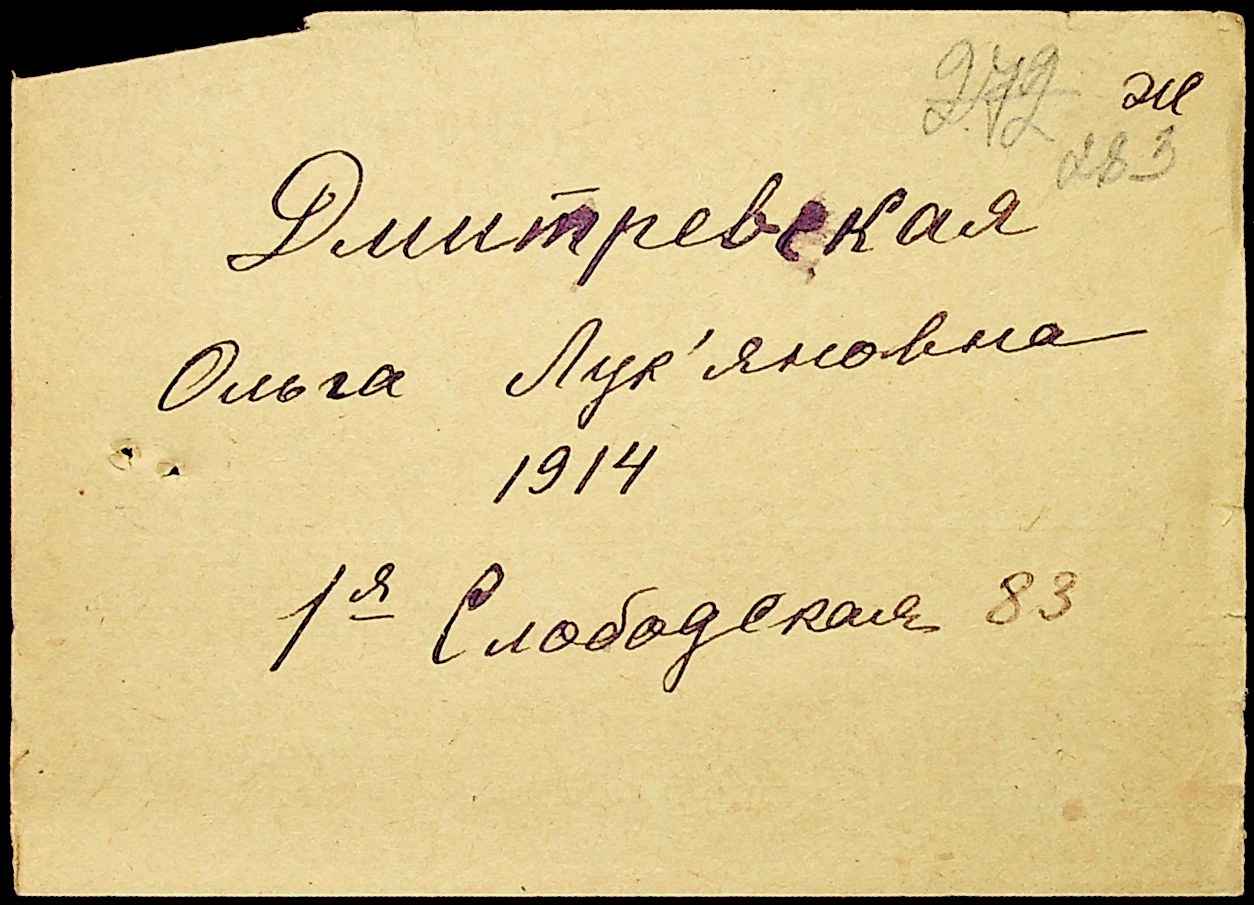 272 ж
283
Дмитревская
Ольга Лук'яновна
1914
1я Слободская 83